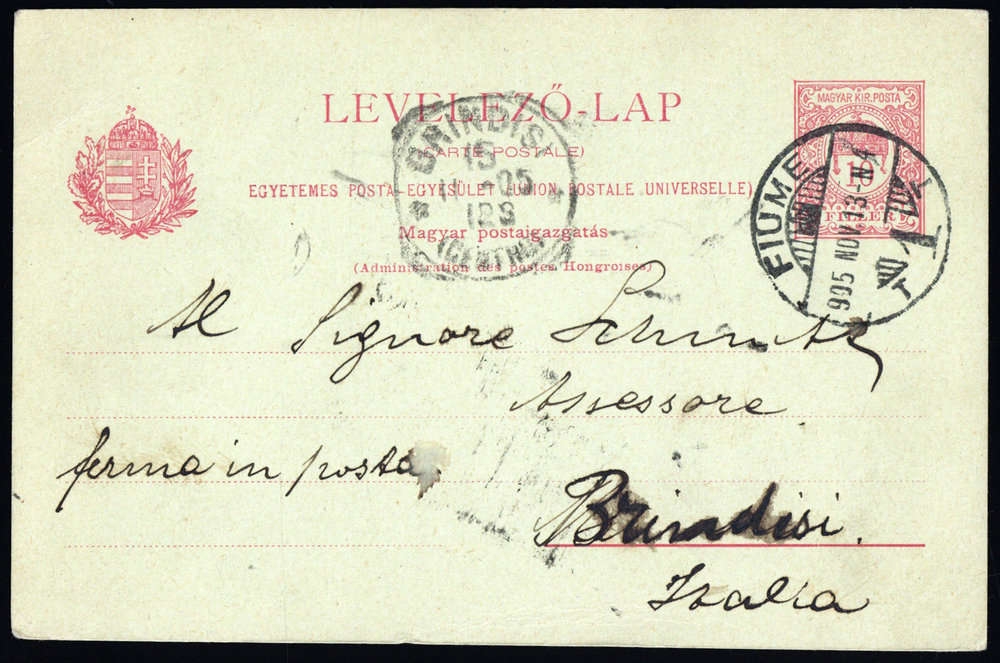 LEVELEZŐ-LAP
(CARTE POSTALE)
EGYETEMES POSTA-EGYESÜLET (UNION POSTALE UNIVERSELLE)
Magyar postaigazgatás
(Administration des postes Hongroises)
MAGYAR KIR. POSTA
10
FILLÉR
FIUME
905 NOV 13
BRINDISI
15
11-05
12S
(CENTRO)
Al Signore Schmutz
Assessore
ferma in posta
Brindisi.
Italia